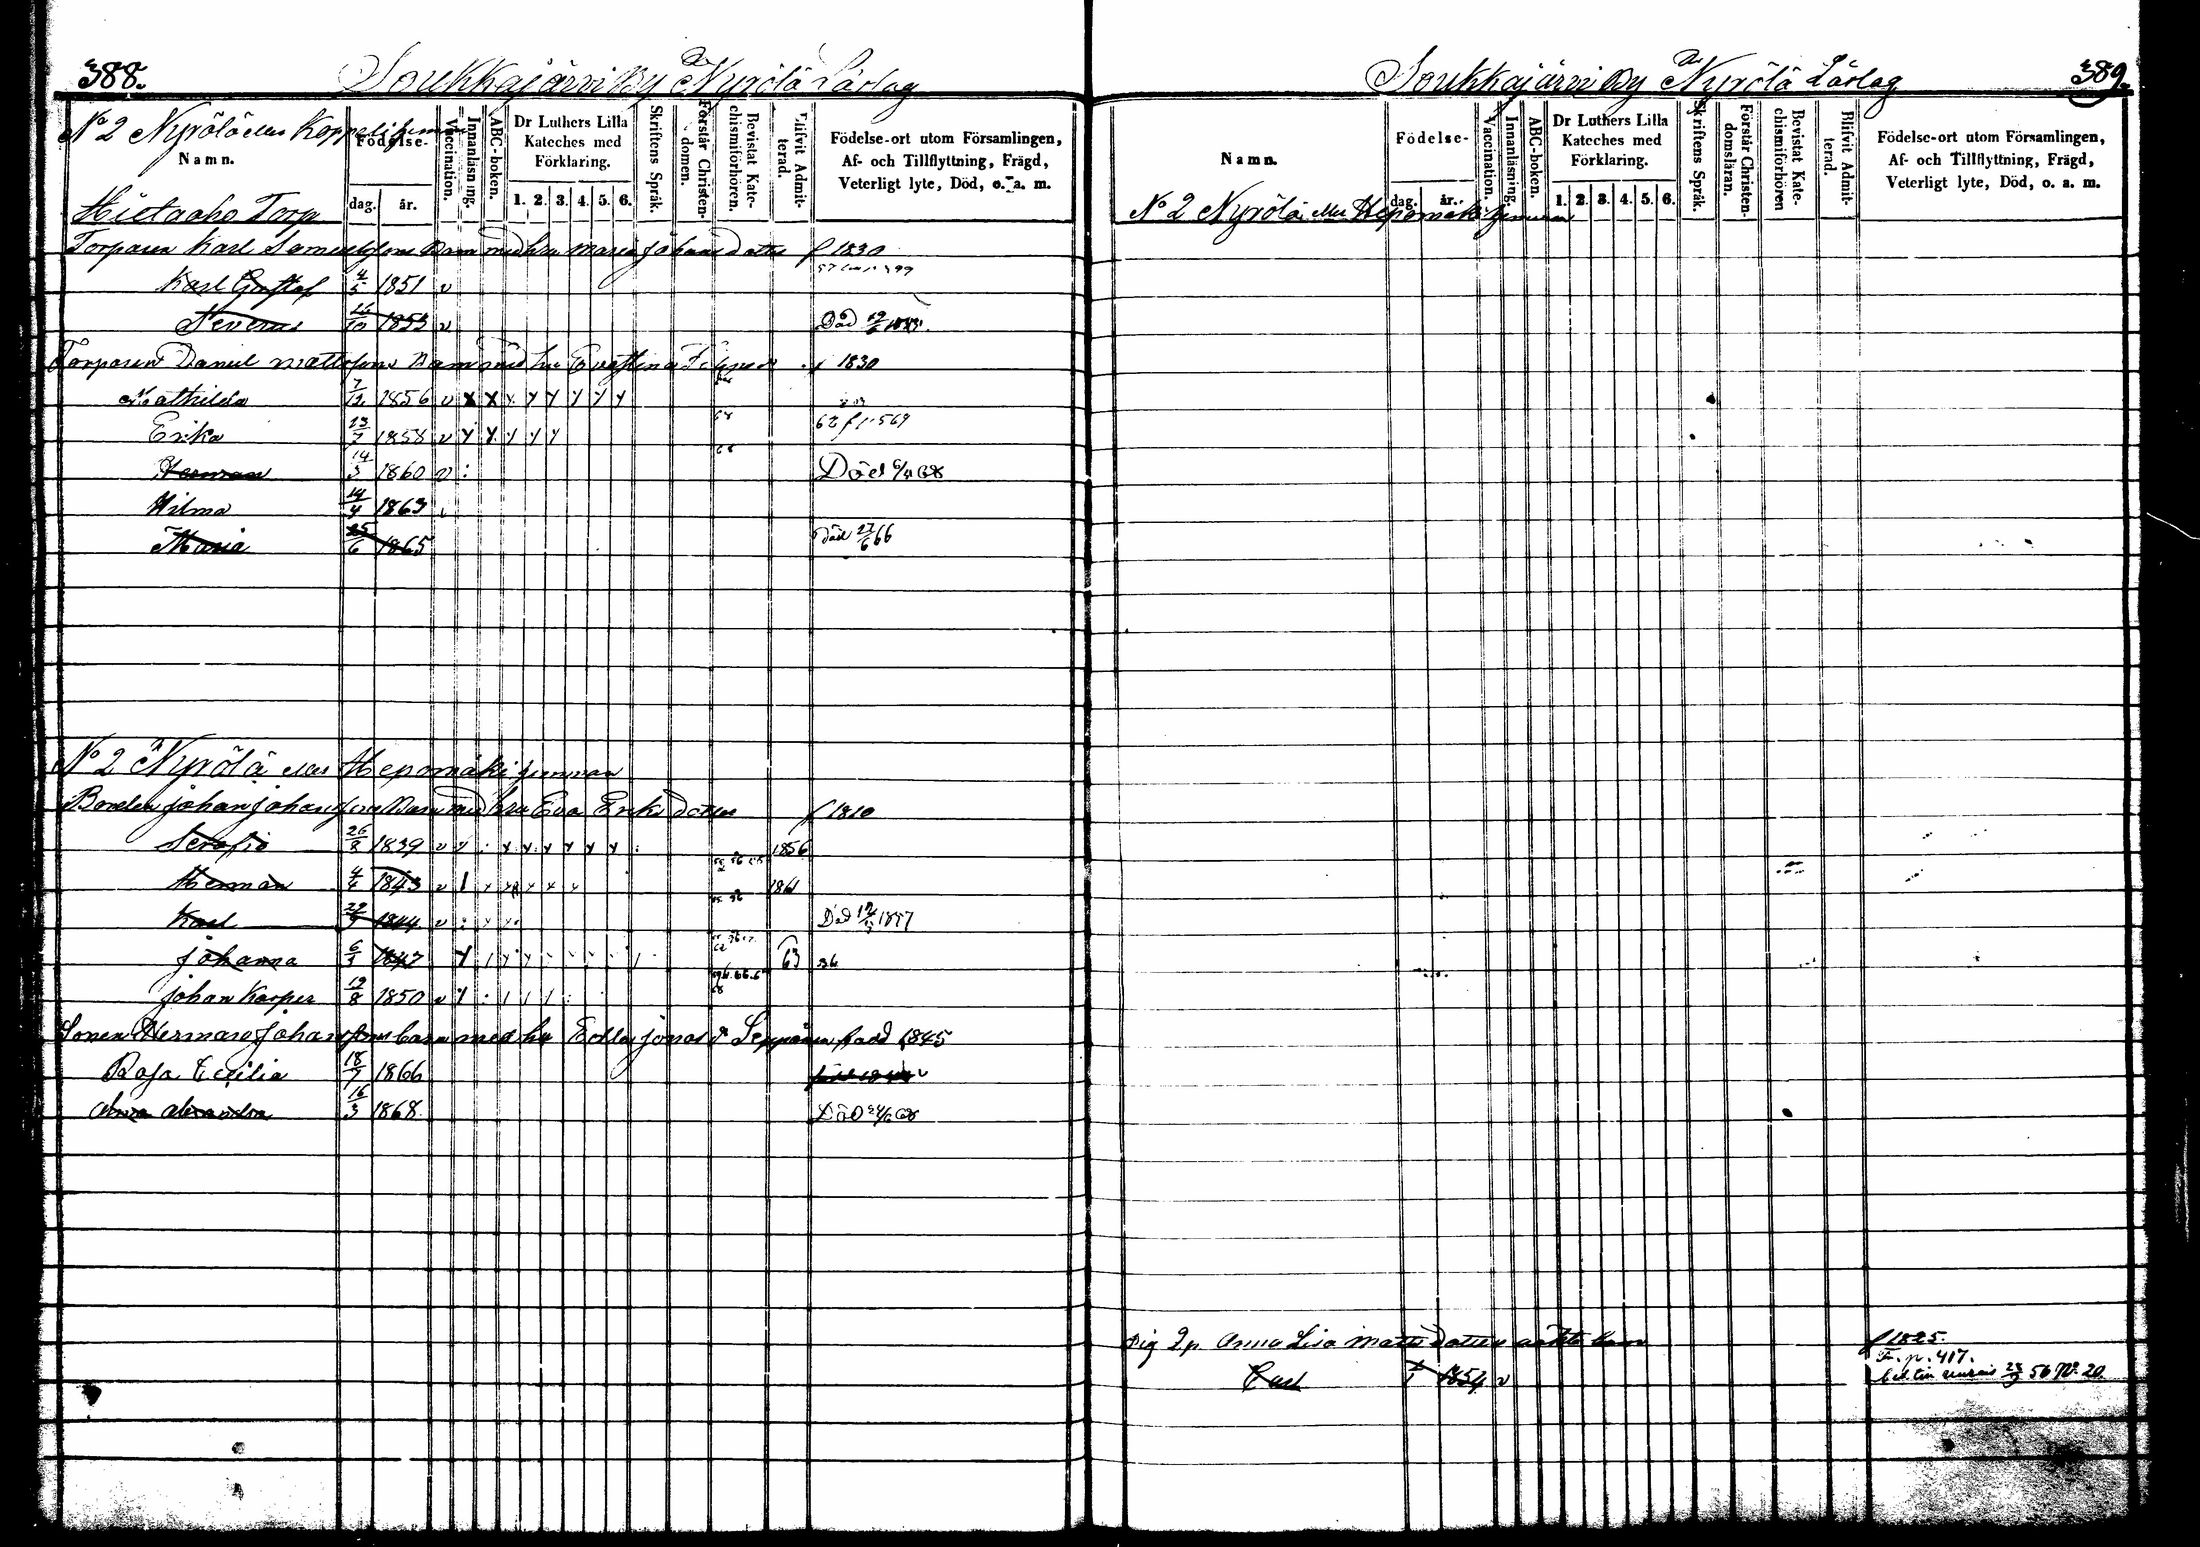 388.
Soukkajärvi By Nyrölä Läslag
N:o 2 Nyrölä eller Koppeli hemman
Namn.
Födelse-
dag. år.
Vaccination.
Innanläsning.
ABC-boken.
Dr Luthers Lilla Kateches med Förklaring.
1. 2. 3. 4. 5. 6.
Skriftens Språk.
Förstår Christendomen.
Bevistat Katechismiförhören.
Blifvit Admitterad.
Födelse-ort utom Församlingen, Af- och Tillflyttning, Frägd, Veterligt lyte, Död, o. a. m.
Hietaaho Torp
Torparen Karl Samuelsons Barn med hu Maria Johansdotter f 1830
Karl Gustaf 4/5 1851 v
Severus 26/10 1853 v Död
Torparen Daniel Mattssons Barn med hu Evastina f 1830
Mathilda 7/12 1856 v x x y y y y y y
Erika 23/7 1858 v y y y y y 68 62 f p. 569
Herman 14/3 1860 v 68 Död 6/4 68
Hilma 14/4 1863
Maria 25/6 1865 Död 27/6 66
N:o 2 Nyrölä eller Hepomäki hemman
Bonden Johan Johanssons Barn med hu Eva Eriksdotter f 1810
Serafia 26/8 1839 v y y y y y y y 1856
Herman 4/4 1843 v 1861
Karl 29/9 1844 v Död
Johanna 6/5 1847 y 63
Johan Kasper 19/8 1850 v 68
Sonen Herman Johanssons barn med hu Edla Jonas d:r Seppänen född 1845
Rosa Cecilia 18/7 1866
Anna Alexandra 16/3 1868 Död
Soukkajärvi By Nyrölä Läslag
389.
Namn.
Födelse-
dag. år.
Vaccination.
Innanläsning.
ABC-boken.
Dr Luthers Lilla Kateches med Förklaring.
1. 2. 3. 4. 5. 6.
Skriftens Språk.
Förstår Christendomsläran.
Bevistat Katechismiförhören
Blifvit Admitterad.
Födelse-ort utom Församlingen, Af- och Tillflyttning, Frägd, Veterligt lyte, Död, o. a. m.
N:o 2 Nyrölä eller Hepomäki hemman
Pig Anna Lisa Mattsdotters oäkta barn f 1825.
F. p. 417.
Carl 1854 v 56 N:o 20.